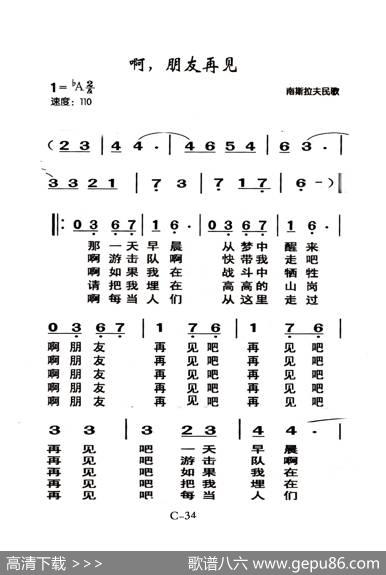 啊，朋友再见
1=♭A 2/4
速度：110
南斯拉夫民歌
(2 3 | 4 4· | 4 5 4 3 | 6 3· |
3 3 2 1 | 7 3 | 7 1 7 | 6 -) ||
||: 0 3 6 7 | 1 6· | 0 3 6 7 | 1 6· |
那一天早晨 从梦中醒来
啊游击队啊 快带我走吧
啊如果我在 战斗中牺牲
请把我埋在 高高的山岗
啊每当人们 从这里走过
0 3 6 7 | 1 7 6 | 1 7 6 |
啊朋友 再见吧 再见吧
啊朋友 再见吧 再见吧
啊朋友 再见吧 再见吧
啊朋友 再见吧 再见吧
啊朋友 再见吧 再见吧
3 3 | 3 2 3 | 4 4· |
再见 吧一天 早晨
再见 吧游击 队啊
再见 吧如果 我在
再见 吧把我 埋在
再见 吧每当 人们
C-34
高清下载 >>>
歌谱八六 www.gepu86.com